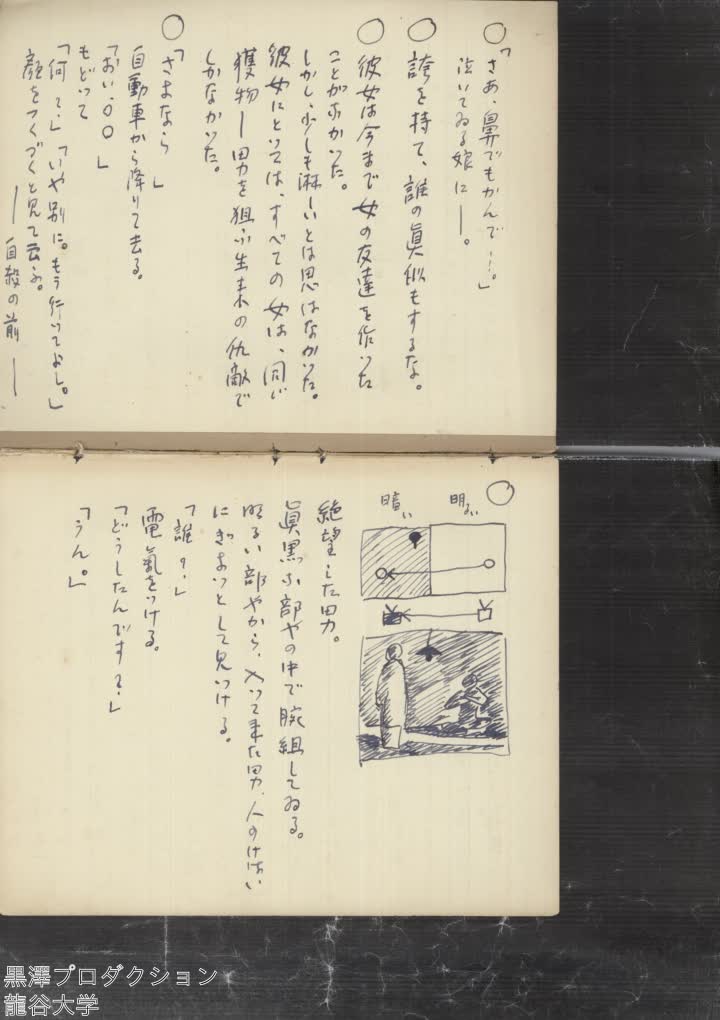 ○「さあ、鼻でもかんで…。」
泣いてゐる娘に—。
○誇を持て、誰の眞似もするな。
○彼女は今まで女の友達を作った
ことがなかった。
しかし、少しも淋しいとは思はなかった。
彼女にとっては、すべての女は、同じ
獲物—男を狙ふ生来の仇敵で
しかなかった。
○「さよなら」
自動車から降りて去る。
「おい、○○」
もどって
「何て?」「いや別に。もう行ってよし。」
顔をつくづくと見て云ふ。
—自殺の前—
○
明るい
暗い
絶望した男。
眞黒な部やの中で腕組してゐる。
明るい部やから、入って来た男、人のけはい
にぎよっとして見つける。
「誰?」
電氣をつける。
「どうしたんです?」
「うん。」
黒澤プロダクション
龍谷大学